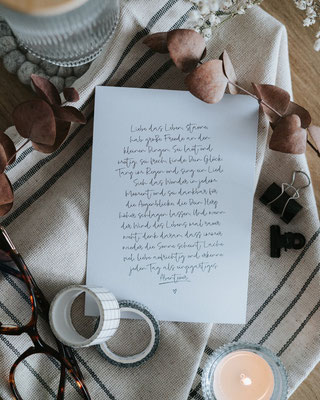 Liebe das Leben, staune
hab große Freude an den
kleinen Dingen. Sei laut und
mutig, sei frech, finde Dein Glück
Tanz im Regen und sing ein Lied.
Sieh das Wunder in jedem
Moment und sei dankbar für
die Augenblicke die Dein Herz
höher schlagen lassen. Und wenn
der Wind des Lebens mal rauer
weht, denk daran dass immer
wieder die Sonne scheint. Lache
viel, liebe aufrichtig und erkenne
jeden Tag als einzigartiges
Abenteuer.